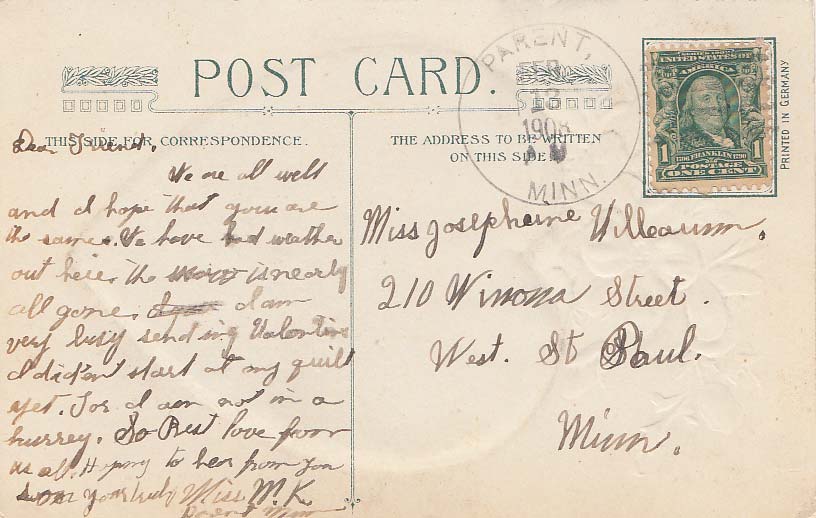 POST CARD.
THIS SIDE FOR CORRESPONDENCE.
THE ADDRESS TO BE WRITTEN
ON THIS SIDE
PARENT,
FEB
1908
MINN.
UNITED STATES OF
AMERICA
1706 FRANKLIN 1790
1 POSTAGE 1
ONE CENT
PRINTED IN GERMANY
Dear Friend.
We are all well
and I hope that you are
the same. We have had weather
out here. the is nearly
all gone. I am
very busy sending Valentine
I did'ent start at my quilt
yet. For I am not in a
hurrey. So Best love from
us all. Hoping to hear from you
soon yours truly Miss M.K.
Parent Minn
Miss Josepheine
210 Winona Street.
West. St Paul.
Minn.